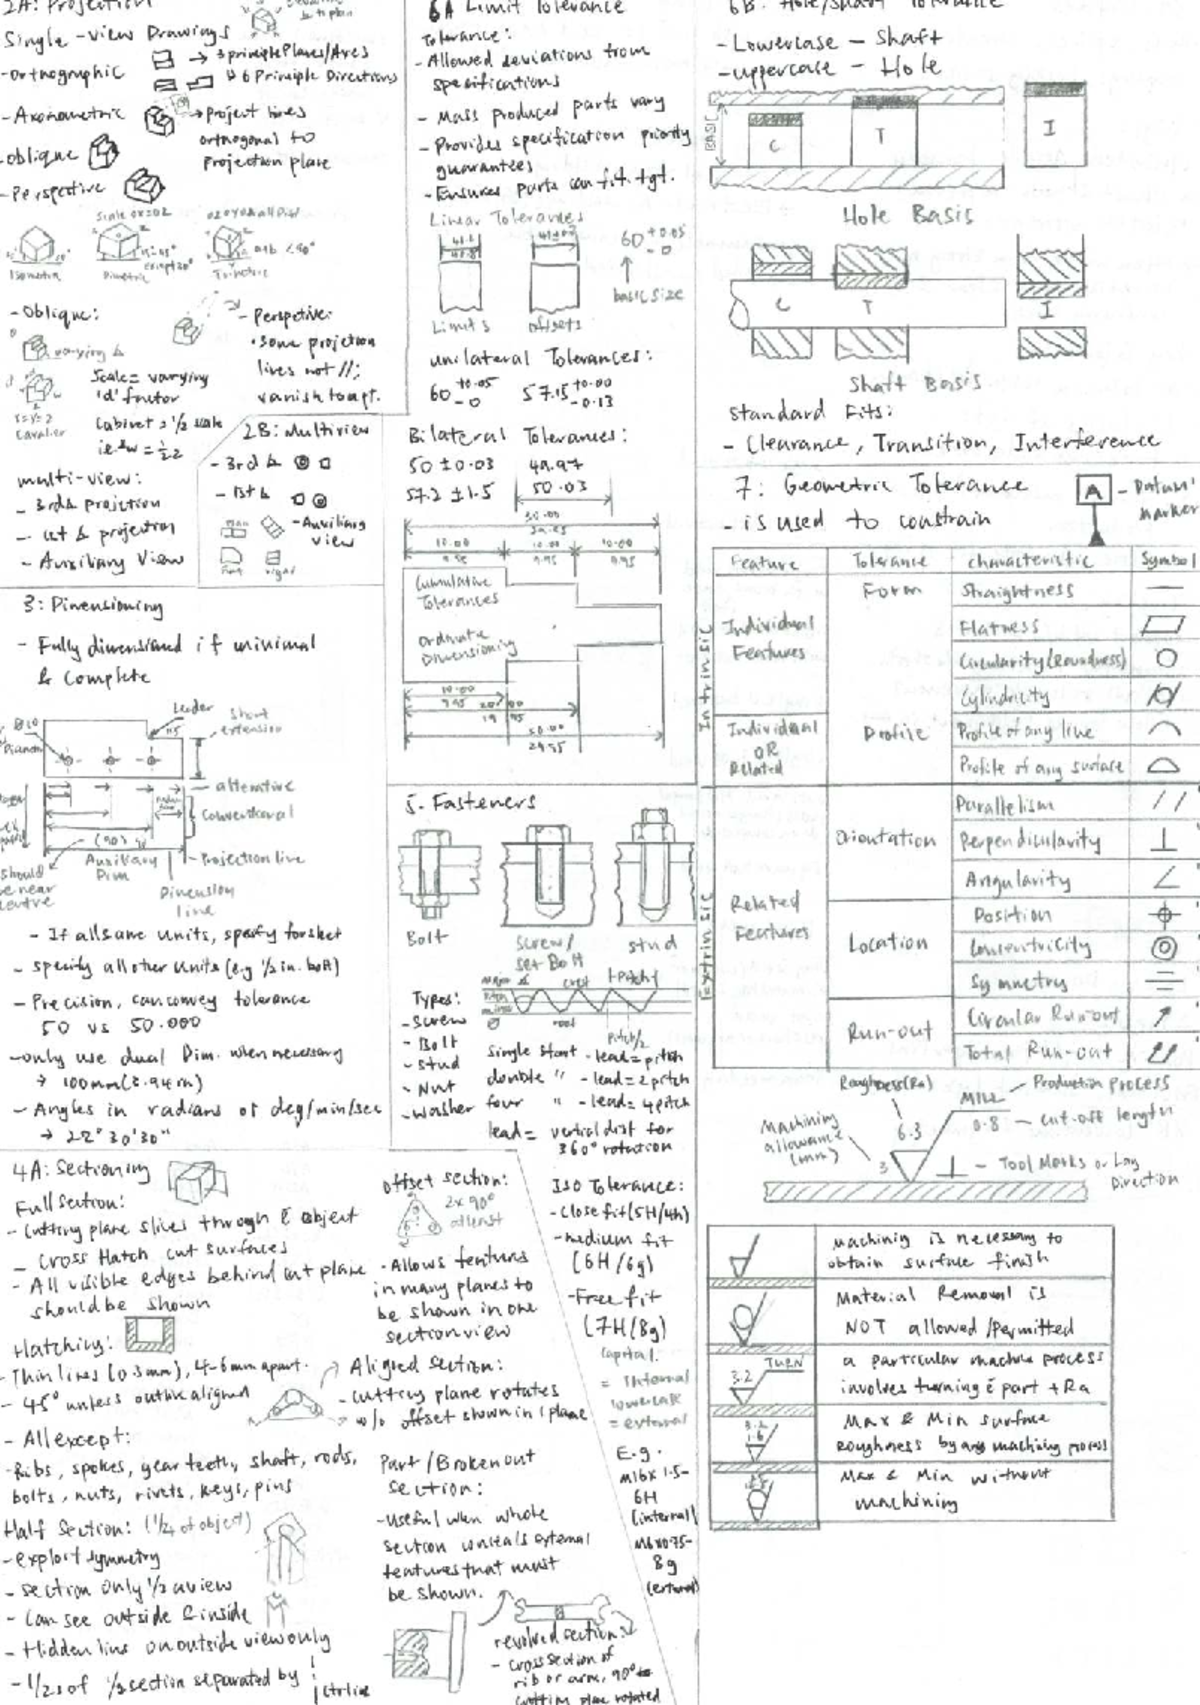 2A: Projection
Single-view Drawings
-Orthographic
→ 3 principle Planes/Axes
↳ 6 Principle Directions
-Axonometric
→ Project lines
orthogonal to
Projection plane
-oblique
-Perspective
Isometric
Dimetric
Trimetric
-Oblique:
varying &
Scale = varying
'd' factor
Cavalier
Cabinet = 1/2 scale
- Perspetive:
• some projection
lines not //;
vanish to a pt.
multi-view:
- 3rd & projection
- 1st & projection
- Auxiliary View
2B: Multiview
- 3rd &
- 1st &
- Auxiliary
view
3: Dimensioning
- Fully dimensioned if minimal
& complete
Leader
Short
extension
alternative
Conventional
(90)
Auxiliary
Dim
Projection line
Dimension
line
should
be near
centre
- If all same units, specify for sket
- specify all other units (e.g 1/2 in. bolt)
- Precision, can convey tolerance
50 vs 50.000
- only use dual Dim. when necessary
→ 100mm (3.94 in)
- Angles in radians or deg/min/sec
→ 22° 30' 30"
4A: Sectioning
Full section:
- Cutting plane slices through object
- Cross Hatch cut surfaces
- All visible edges behind cut plane
should be shown
Hatching:
- Thin lines (0.3mm), 4-6mm apart.
- 45° unless outline aligned
- All except:
- Ribs, spokes, gear teeth, shaft, rods,
bolts, nuts, rivets, keys, pins
Half Section: (1/4 of object)
- exploit symmetry
- section only 1/2 a view
- Can see outside & inside
- Hidden line on outside view only
- 1/2s of 1/2 section separated by ctrline
offset section:
2x 90°
at least
- Allows features
in many planes to
be shown in one
section view
Aligned Section:
- Cutting plane rotates
w/o offset shown in 1 plane
Part/Broken out
Section:
- Useful when whole
section conceals external
features that must
be shown.
revolved section:
- Cross section of
rib or arm, 90° to
cutting plane rotated
6A Limit Tolerance
Tolerance:
- Allowed deviations from
specifications
- Mass produced parts vary
- Provides specification priority
guarantees
- Ensures parts can fit tgt.
Linear Tolerances
60 +0.05 -0
basic size
Limits
offsets
unilateral Tolerances:
60 +0.05 -0
57.15 +0.00 -0.13
Bilateral Tolerances:
50 ±0.03
57.2 ±1.5
49.97
50.03
30.00
10.00
10.00
10.00
9.95
9.95
9.95
Cumulative
Tolerances
Ordinate
Dimensioning
10.00
9.95
20.00
19.95
30.00
29.95
5. Fasteners
Bolt
Screw/
Set Bolt
Stud
Types:
- Screw
- Bolt
- Stud
- Nut
- Washer
crest
pitch
root
pitch/2
Single Start - lead = pitch
double " - lead = 2 pitch
four " - lead = 4 pitch
lead = vertical dist for
360° rotation
ISO Tolerance:
- Close fit (5H/4h)
- medium fit
(6H/6g)
- Free fit
(7H/8g)
Capital:
= Internal
lowercase
= external
E.g.
M16x1.5-
6H
(internal)
M6x0.75-
8g
(external)
6B: Hole/Shaft Tolerance
- Lowercase - Shaft
- uppercase - Hole
BASIC
C
T
I
Hole Basis
C
T
I
Shaft Basis
Standard Fits:
- Clearance, Transition, Interference
7: Geometric Tolerance
- is used to constrain
A
- Datum
marker
Feature Tolerance Characteristic Symbol
Intrinsic
Individual
Features
Form
Straightness
Flatness
Circularity (Roundness)
Cylindricity
Individual
OR
Related
Profile
Profile of any line
Profile of any surface
Extrinsic
Related
Features
Orientation
Parallelism
Perpendicularity
Angularity
Location
Position
Concentricity
Symmetry
Run-out
Circular Run-out
Total Run-out
Roughness (Ra)
Production process
MILL
6.3
0.8
cut-off length
Machining
allowance
(mm)
3
⊥
- Tool Marks or Lay
Direction
Machining is necessary to
obtain surface finish
Material Removal is
NOT allowed/permitted
TURN
3.2
a particular machine process
involves turning part + Ra
3.2
1.6
Max & Min surface
roughness by any machining process
Max & Min without
machining